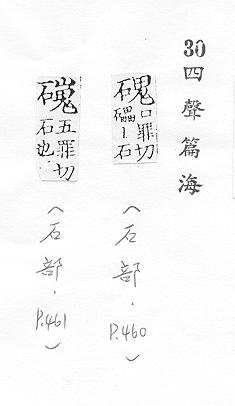 30 四聲篇海
磈 口罪切 礧丨石
(石部. P.460)
五罪切 石也
(石部. P.461)